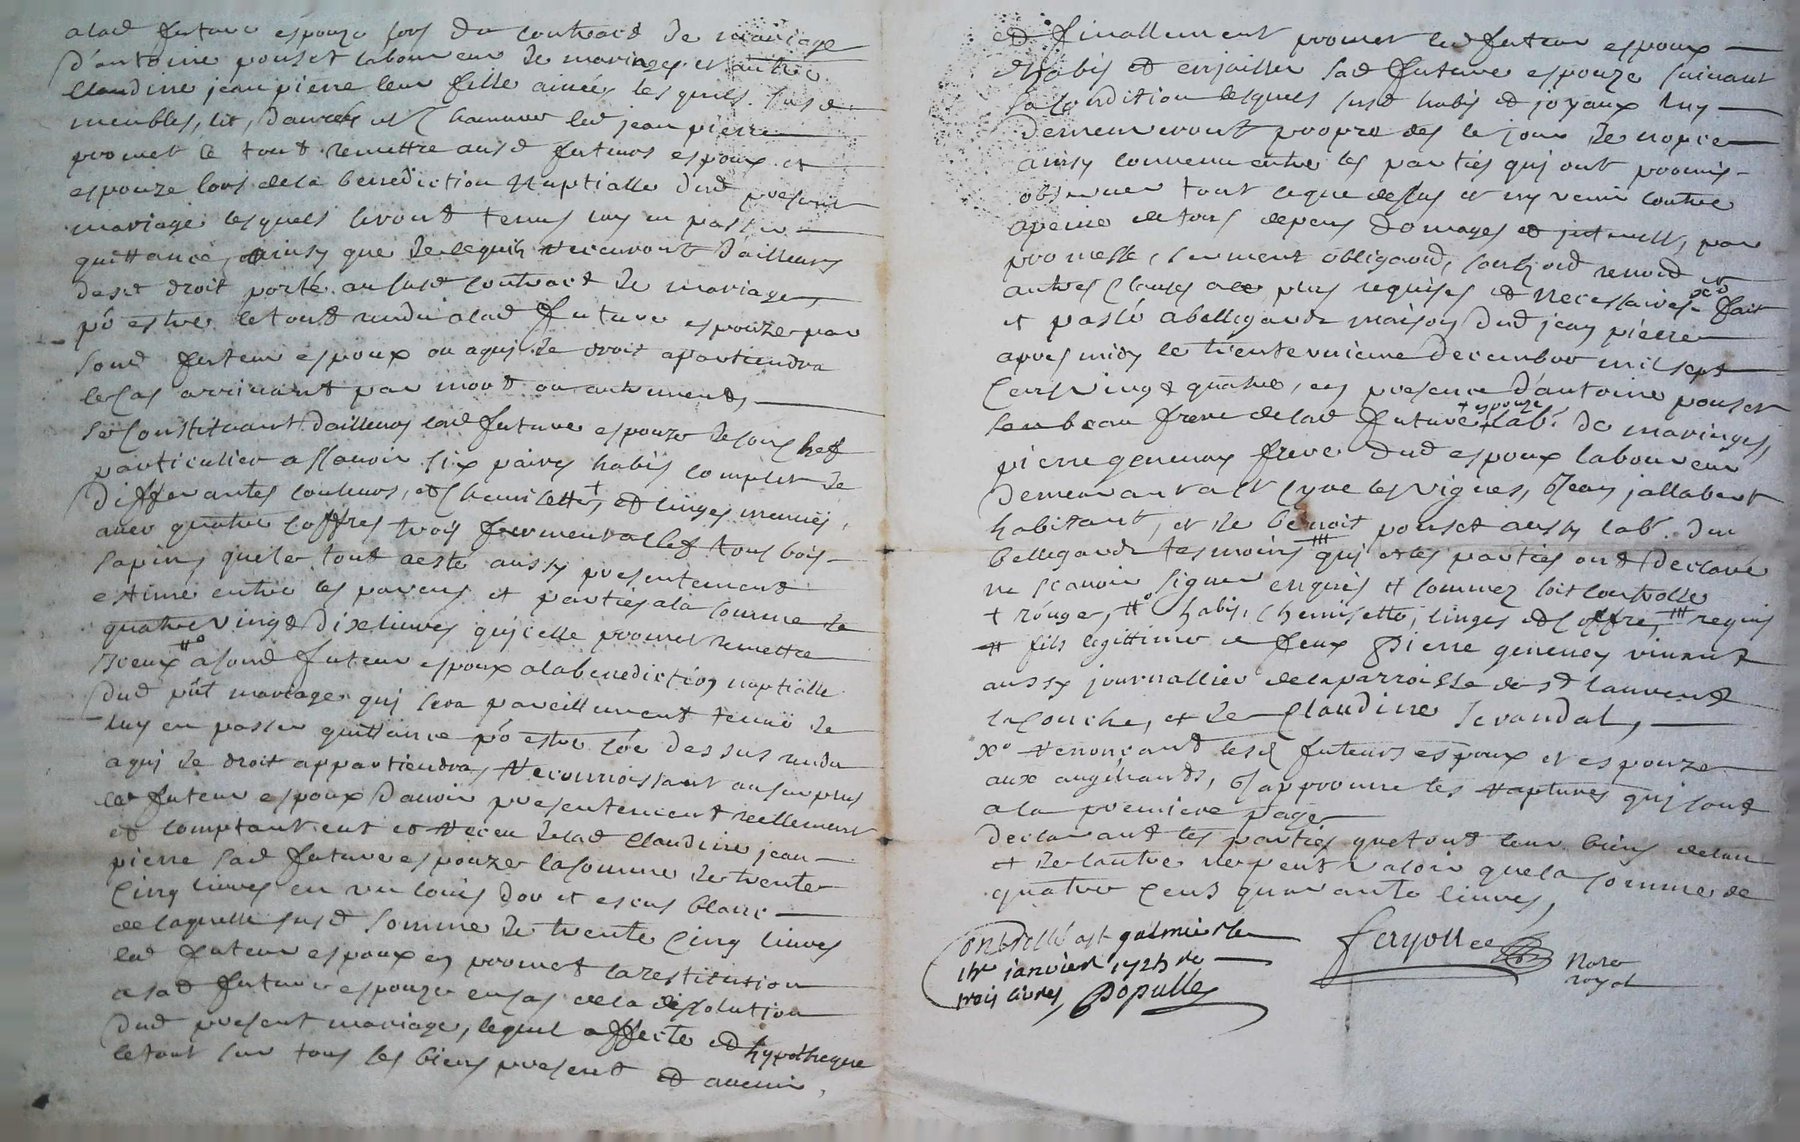 alad future espouze lors du contract de mariage
d'antoine pouset laboureur de maringes et autre
Claudine jeanpierre leur fille ainée, lesquels susd
meubles, lit, danrées et chanvre led jean pierre
promet le tout remettre ausd futurs espoux et
espouze lors dela benediction Nuptialle dud present
mariage lesquels seront tenus luy en passer
quittance, ainsy que de ce quils recevront d'ailleurs
desd droit porté au susd contract de mariage
po estre le tout rendu alad future espouze par
sond futeur espoux ou aquy de droit apartiendra
le cas arrivant par mort ou autrement,
se Constituant d'ailleurs lad future espouze de son chef
particulier assavoir six paires habis complet de
differantes couleurs, et chemisette + et linges menues,
avec quatre coffres trois fermentallef tous bois
sapins, que le tout a esté aussy presentement
estimé entre les parens et parties a la somme de
quatre vingt dix livres qu'icelle promet remettre
iceux # a sond futeur espoux a la benediction nuptialle
dud pnt mariage, qui sera pareillement tenu de
luy en passer quittance po estre ce dessus rendu
a qui de droit appartiendra, Reconnoissant au surplus
led futeur espoux d'avoir presentement reellement
et comptant eut et Receu delad Claudine jean
pierre sad future espouze la somme de trente
cinq livres en un louis d'or et escus blanc
de laquelle susd somme de trente cinq livres
led futeur espoux en promet la restitution
a sad future espouze en cas de la dissolution
dud present mariage, lequel affecte et hypotheque
le tout sur tous ses biens present et avenir,
et finallement promet led futeur espoux
d'habis et enjailler sad future espouze suivant
sa condition lesquels susd habis et joyaux luy
demeureront propre des le jour de nopce
ainsy convenu entre les parties qui ont promis
observer tout ce que dessus et ny venir contre
apeine de tous depens domages et interests, par
promesse, serment obligaõd, soubzõd renoõd et
autres clauses a ce plus requises et necessaires xo fait
et passé a bellegarde maison dud jean pierre
apres midy le trente unieme decembre mil sept
cens vingt quatre, en presence d'antoine pouset
beau frere de lad future + espouze lab. de maringes,
pierre genevay frere dud espoux laboureur
demeurant a St Cyre les vignes, Jean jallabert
habitant, et de benoit pouset aussy lab. dud
bellegarde tesmoins qui et les parties ont declaré
ne scavoir signer enquis et sommez soit controllé
+ rouge, #o habis, chemisette, linges et coffre, requis
# fils legittime a feux Pierre genevey vivant
aussy journallier de la parroisse de st laurent
la Conche, et de Claudine Jerandal,
xo renonçant lesd futeurs espoux et espouze
aux augments, et approuve les raptures qui sont
a la premiere page
declarant les parties que tout leur biens de l'un
et de l'autre ne peut valoir que la somme de
quatre cens quarante livres,
Controllé a st galmier le
janvier 1725 re
trois livres, Populle
feryouree
Note
royal